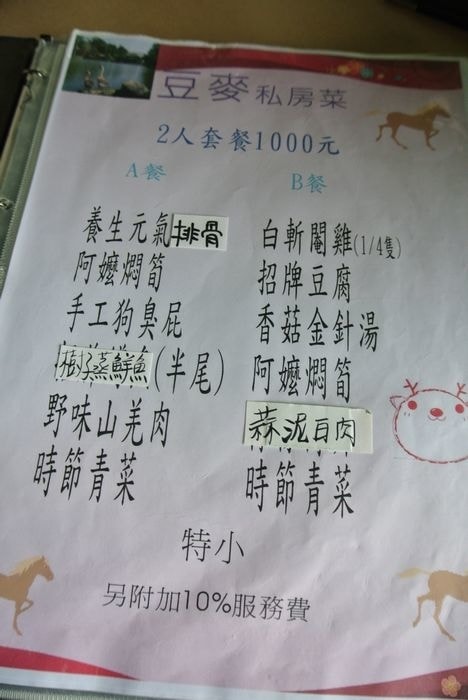 豆麥私房菜
2人套餐1000元
A餐
養生元氣排骨
阿嬤燜筍
手工狗臭屁
樹子蒸鮮魚(半尾)
野味山羌肉
時節青菜
B餐
白斬閹雞(1/4隻)
招牌豆腐
香菇金針湯
阿嬤燜筍
蒜泥白肉
時節青菜
特小
另附加10%服務費